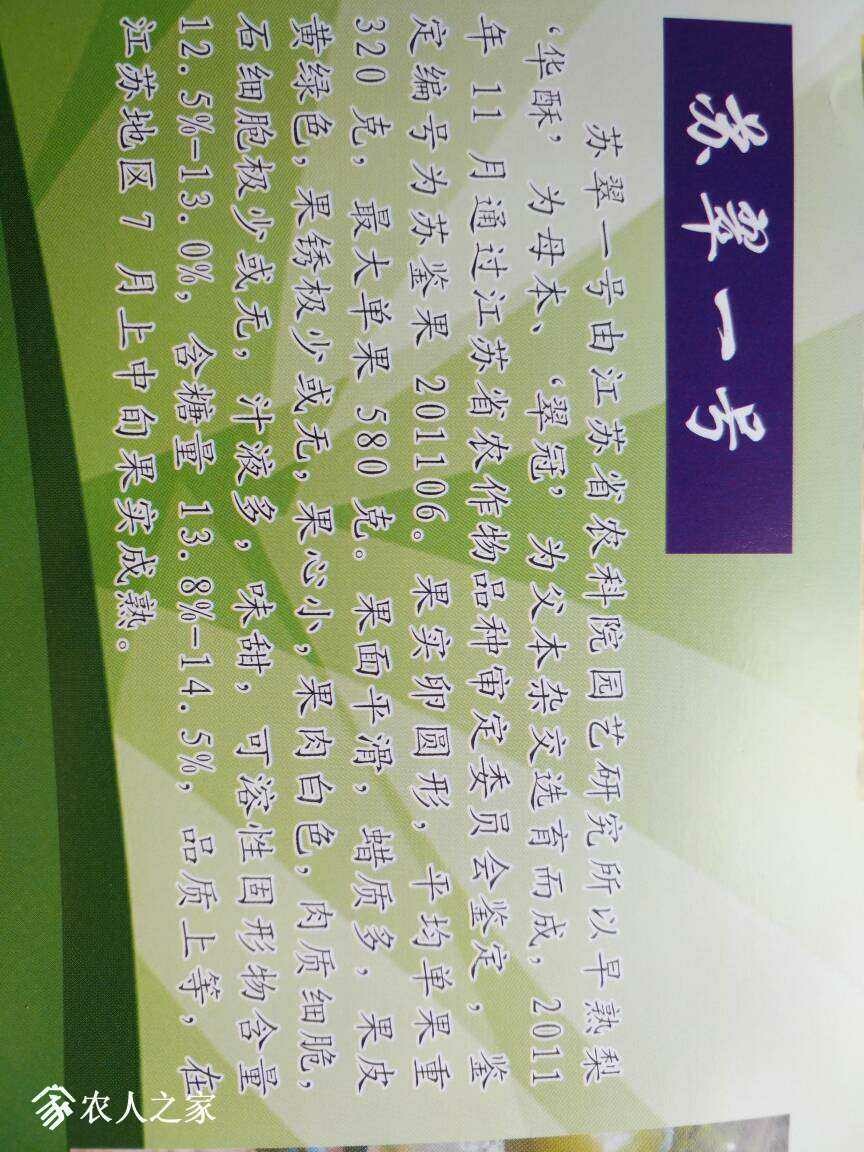 苏翠一号
苏翠一号由江苏省农科院园艺研究所以早熟梨
‘华酥’为母本、‘翠冠’为父本杂交选育而成，2011
年 11 月通过江苏省农作物品种审定委员会鉴定，鉴
定编号为苏鉴果 201106。果实卵圆形，平均单果重
320 克，最大单果 580 克。果面平滑，蜡质多，果皮
黄绿色，果锈极少或无，果心小，果肉白色，肉质细脆，
石细胞极少或无，汁液多，味甜，可溶性固形物含量
12.5%-13.0%，含糖量 13.8%-14.5%，品质上等，在
江苏地区 7 月上中旬果实成熟。
农人之家